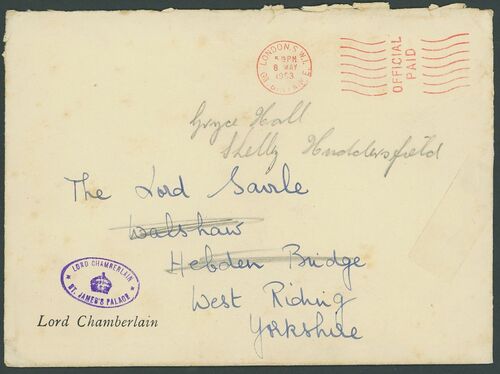 LONDON. S.W.1.
5 PM
8 MAY
1953
OFFICIAL
PAID
Gryce Hall
Shelly Huddersfield
The Lord Savile
Walshaw
Hebden Bridge
West Riding
Yorkshire
LORD CHAMBERLAIN
ST. JAMES'S PALACE
Lord Chamberlain